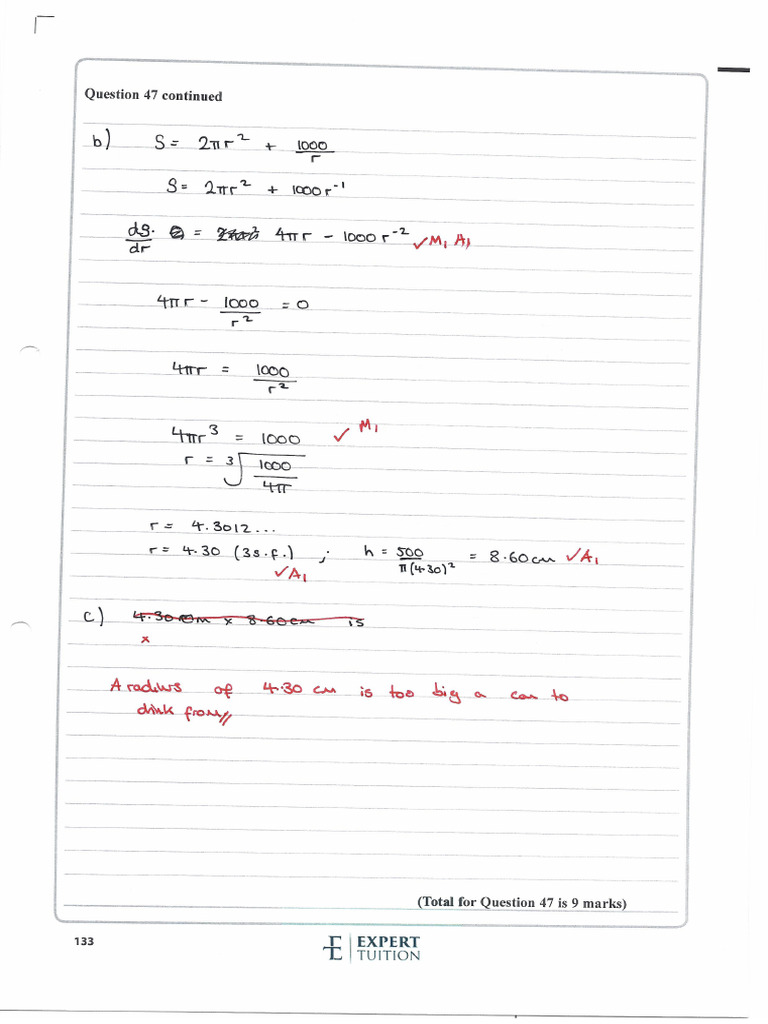 Question 47 continued
b) S = 2πr² + 1000/r
S = 2πr² + 1000r⁻¹
dS/dr = 4πr - 1000r⁻² ✓ M1 A1
4πr - 1000/r² = 0
4πr = 1000/r²
4πr³ = 1000 ✓ M1
r = ³√(1000/4π)
r = 4.3012...
r = 4.30 (3s.f.) ; h = 500/π(4.30)² = 8.60cm ✓A1
✓A1
c) 4.30cm x 8.60cm is
x
A radius of 4.30 cm is too big a can to
drink from//
(Total for Question 47 is 9 marks)
133
EXPERT
TUITION